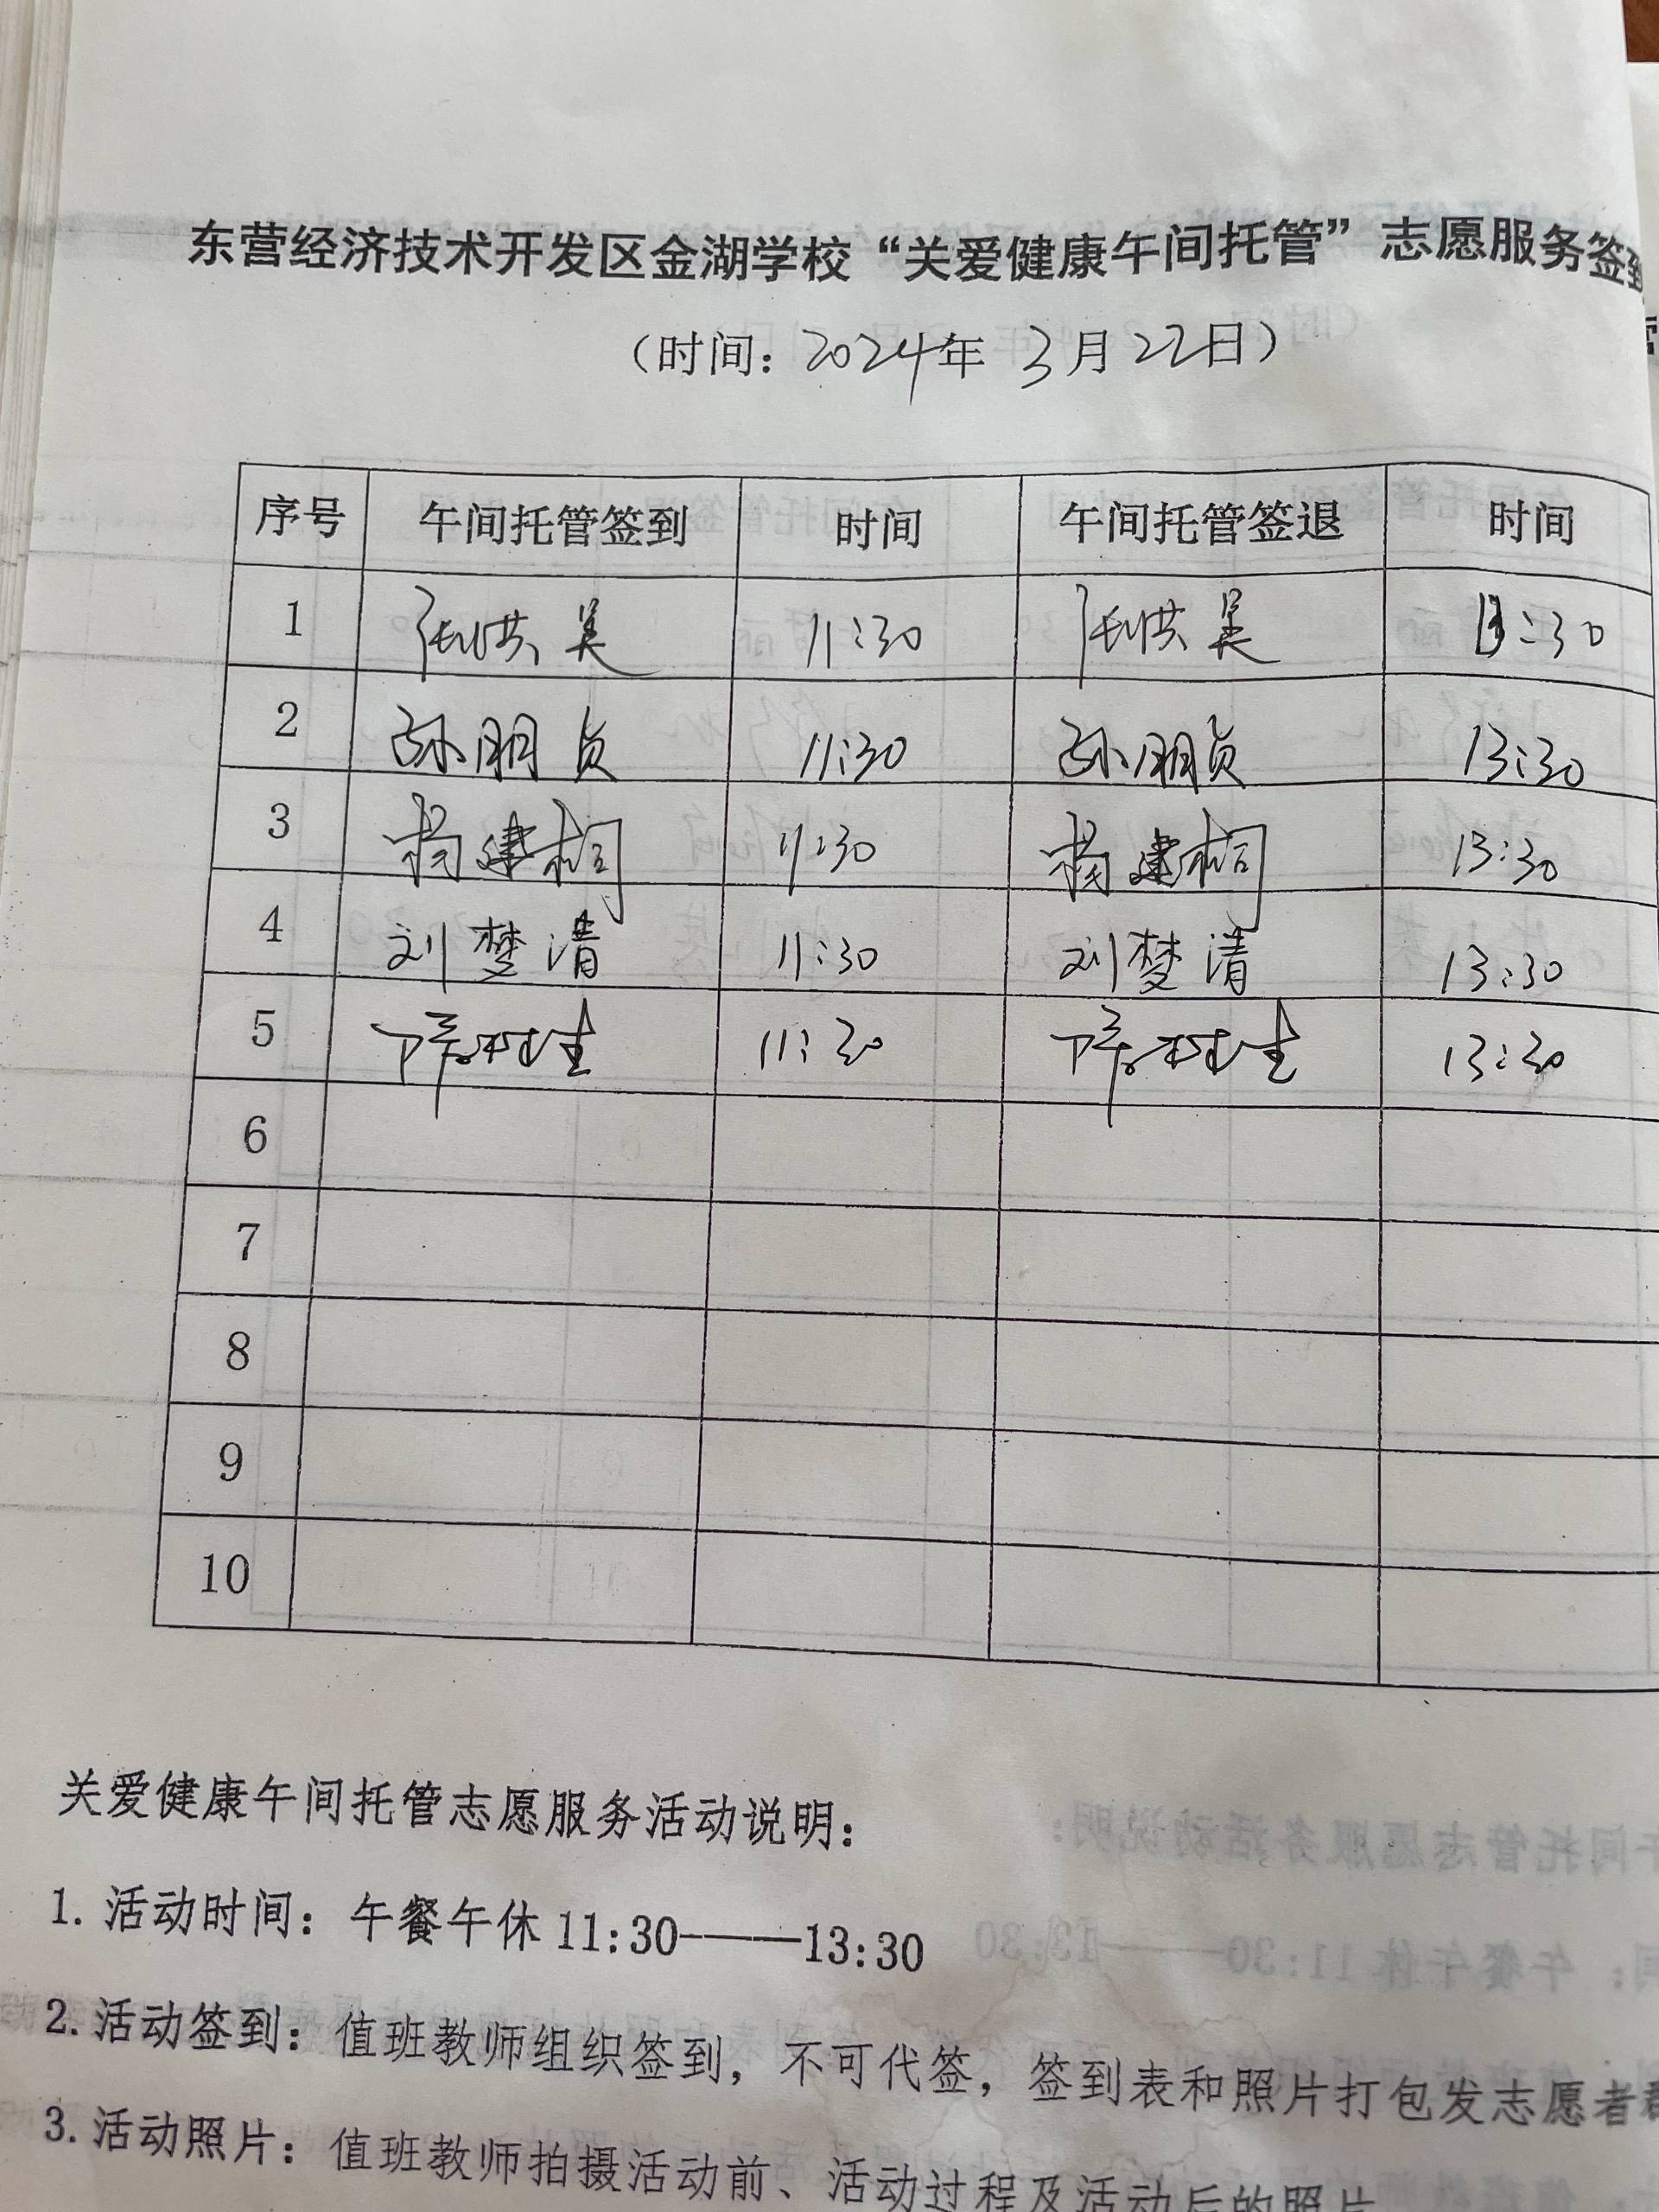 东营经济技术开发区金湖学校“关爱健康午间托管”志愿服务签到
（时间：2024年 3月22日）
序号 午间托管签到 时间 午间托管签退 时间
1 11:30 13:30
2 孙朋贞 11:30 孙朋贞 13:30
3 杨建桐 11:30 杨建桐 13:30
4 刘梦清 11:30 刘梦清 13:30
5 11:30 13:30
6
7
8
9
10
关爱健康午间托管志愿服务活动说明：
1. 活动时间：午餐午休 11:30-——13:30
2. 活动签到：值班教师组织签到，不可代签，签到表和照片打包发志愿者群
3. 活动照片：值班教师拍摄活动前、活动过程及活动后的照片